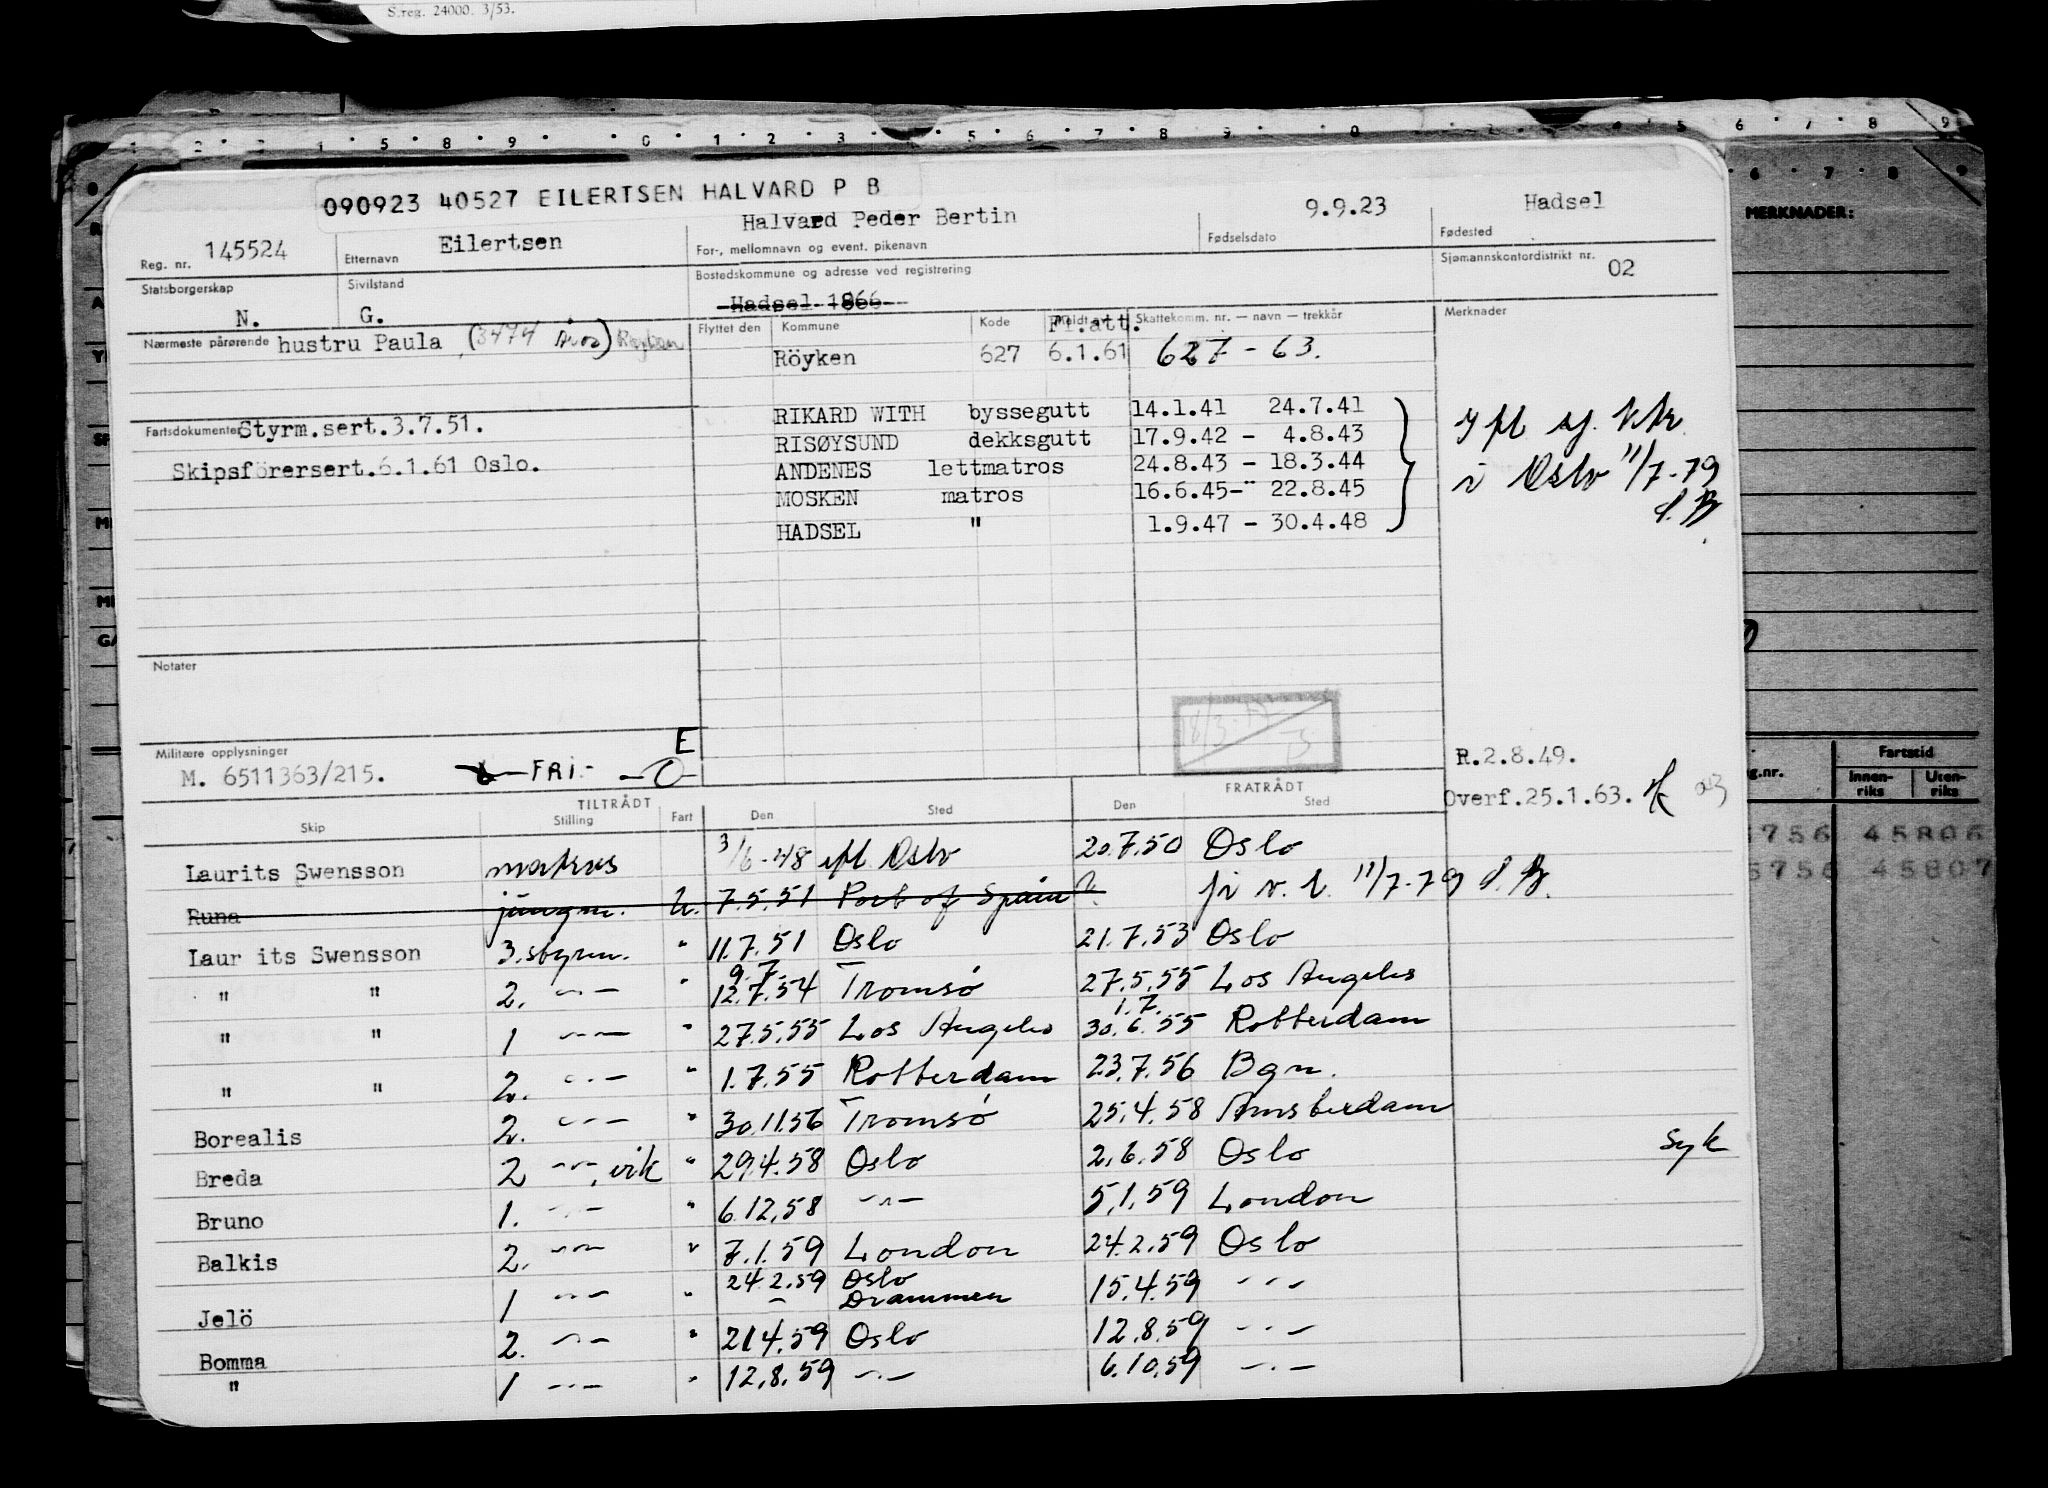 S.reg. 24000. 3/53.
MERKNADER:
090923 40527 EILERTSEN HALVARD P B
Reg. nr. 145524
Etternavn Eilertsen
Halvard Peder Bertin
For-, mellomnavn og event. pikenavn
9.9.23
Fødselsdato
Hadsel
Fødested
Statsborgerskap
N.
Sivilstand
G.
Bostedskommune og adresse ved registrering
Hadsel 1866
Sjømannskontordistrikt nr.
02
Nærmeste pårørende hustru Paula (3474 Åros) Røyken
Flyttet den Kommune Kode Fl.att. Skattekomm. nr. — navn — trekkår
Merknader
Röyken 627 6.1.61 627 - 63.
Fartsdokumenter Styrm.sert.3.7.51.
Skipsförersert.6.1.61 Oslo.
RIKARD WITH byssegutt 14.1.41 24.7.41
RISØYSUND dekksgutt 17.9.42 - 4.8.43
ANDENES lettmatros 24.8.43 - 18.3.44
MOSKEN matros 16.6.45-" 22.8.45
HADSEL " 1.9.47 - 30.4.48
i Oslo 11/7-79
Notater
Militære opplysninger
M. 6511363/215.
FRI.- O
E
R.2.8.49.
Overf.25.1.63.
g.nr.
Fartstid
Innen-riks Uten-riks
5756 45806
5756 45807
TILTRÅDT
FRATRÅDT
Skip Stilling Fart Den Sted Den Sted
Laurits Swensson matros 3/6-48 ifl Oslo 20.7.50 Oslo
Runa jungm. U. 7.5.51 Port of Spain 11/7-79
Laur its Swensson 3.styrm. " 11.7.51 Oslo 21.7.53 Oslo
9.7
" " 2. -"- " 12.7.54 Tromsö 27.5.55 Los Angeles
1.7.
" " 1 -"- " 27.5.55 Los Angeles 30.6.55 Rotterdam
" " 2. -"- " 1.7.55 Rotterdam 23.7.56 Bgn.
Borealis 2. -"- " 30.11.56 Tromsö 25.4.58 Amsterdam
Breda 2 -"- vik " 29.4.58 Oslo 2.6.58 Oslo Syk
Bruno 1. -"- " 6.12.58 -"- 5.1.59 London
Balkis 2. -"- " 7.1.59 London 24.2.59 Oslo
Jelö 1 -"- " 24.2.59 Oslo 15.4.59 -"-
Drammen
Bomma 2. -"- " 21.4.59 Oslo 12.8.59 -"-
" 1 -"- " 12.8.59 -"- 6.10.59 -"-